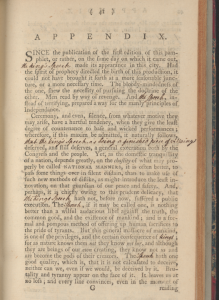 ( 81 )
APPENDIX.
SINCE the publication of the first edition of this pamphlet, or rather, on the same day on which it came out,
the            made its appearance in this city. Had
the spirit of prophecy directed the birth of this production, it
could not have brought it forth at a more seasonable juncture,
or a more necessary time. The bloody-mindedness of
the one, shew the necessity of pursuing the doctrine of the
other. Men read by way of revenge. And the Speech, instead
of terrifying, prepared a way for the manly principles of
independance.
Ceremony, and even, silence, from whatever motive they
may arise, have a hurtful tendency, when they give the least
degree of countenance to base and wicked performances;
wherefore, if this maxim be admitted, it naturally follows,
that the
deserved, and still deserves, a general execration both by the
Congress and the people. Yet, as the domestic tranquility
of a nation, depends greatly, on the chastity of what may properly
be called national manners, it is often better, to
pass some things over in silent disdain, than to make use of
such new methods of dislike, as might introduce the least innovation,
on that guardian of our peace and safety. And,
perhaps, it is chiefly owing to this prudent delicacy, that
the            hath not, before now, suffered a public
execution. The Speech, if it may be called one, is nothing
better than a wilful audacious libel against the truth, the
common good, and the existence of mankind; and is a formal
and pompous method of offering up human sacrifices to
the pride of tyrants. But this general massacre of mankind,
is one of the privileges, and the certain consequence of
for as nature knows them not, they know not her, and although
they are beings of our own creating, they know not us, and
are become the gods of their creators. The Speech hath one
good quality, which is, that it is not calculated to deceive,
neither can we, even if we would, be deceived by it. Brutality
and tyranny appear on the face of it. It leaves us at
no loss; and every line convinces, even in the moment of
G
reading